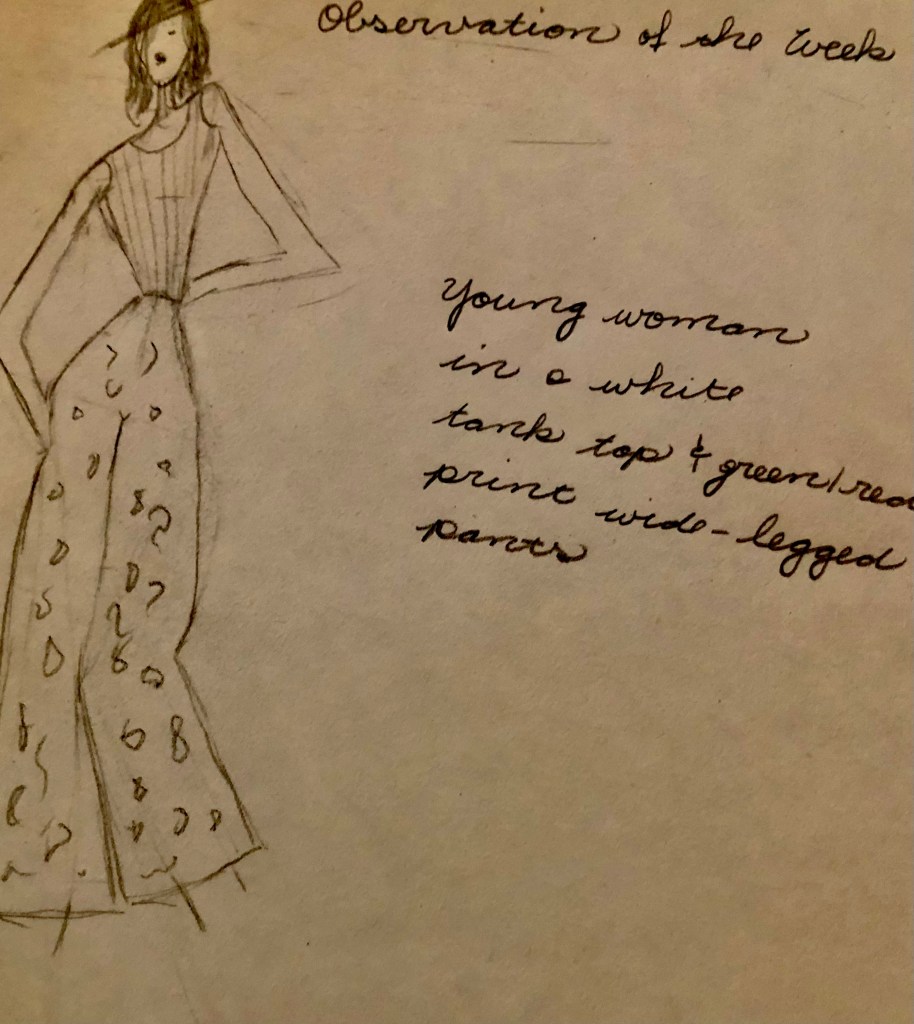 Observation of the Week
Young woman
in a white
tank top & green/red
print wide-legged
pants